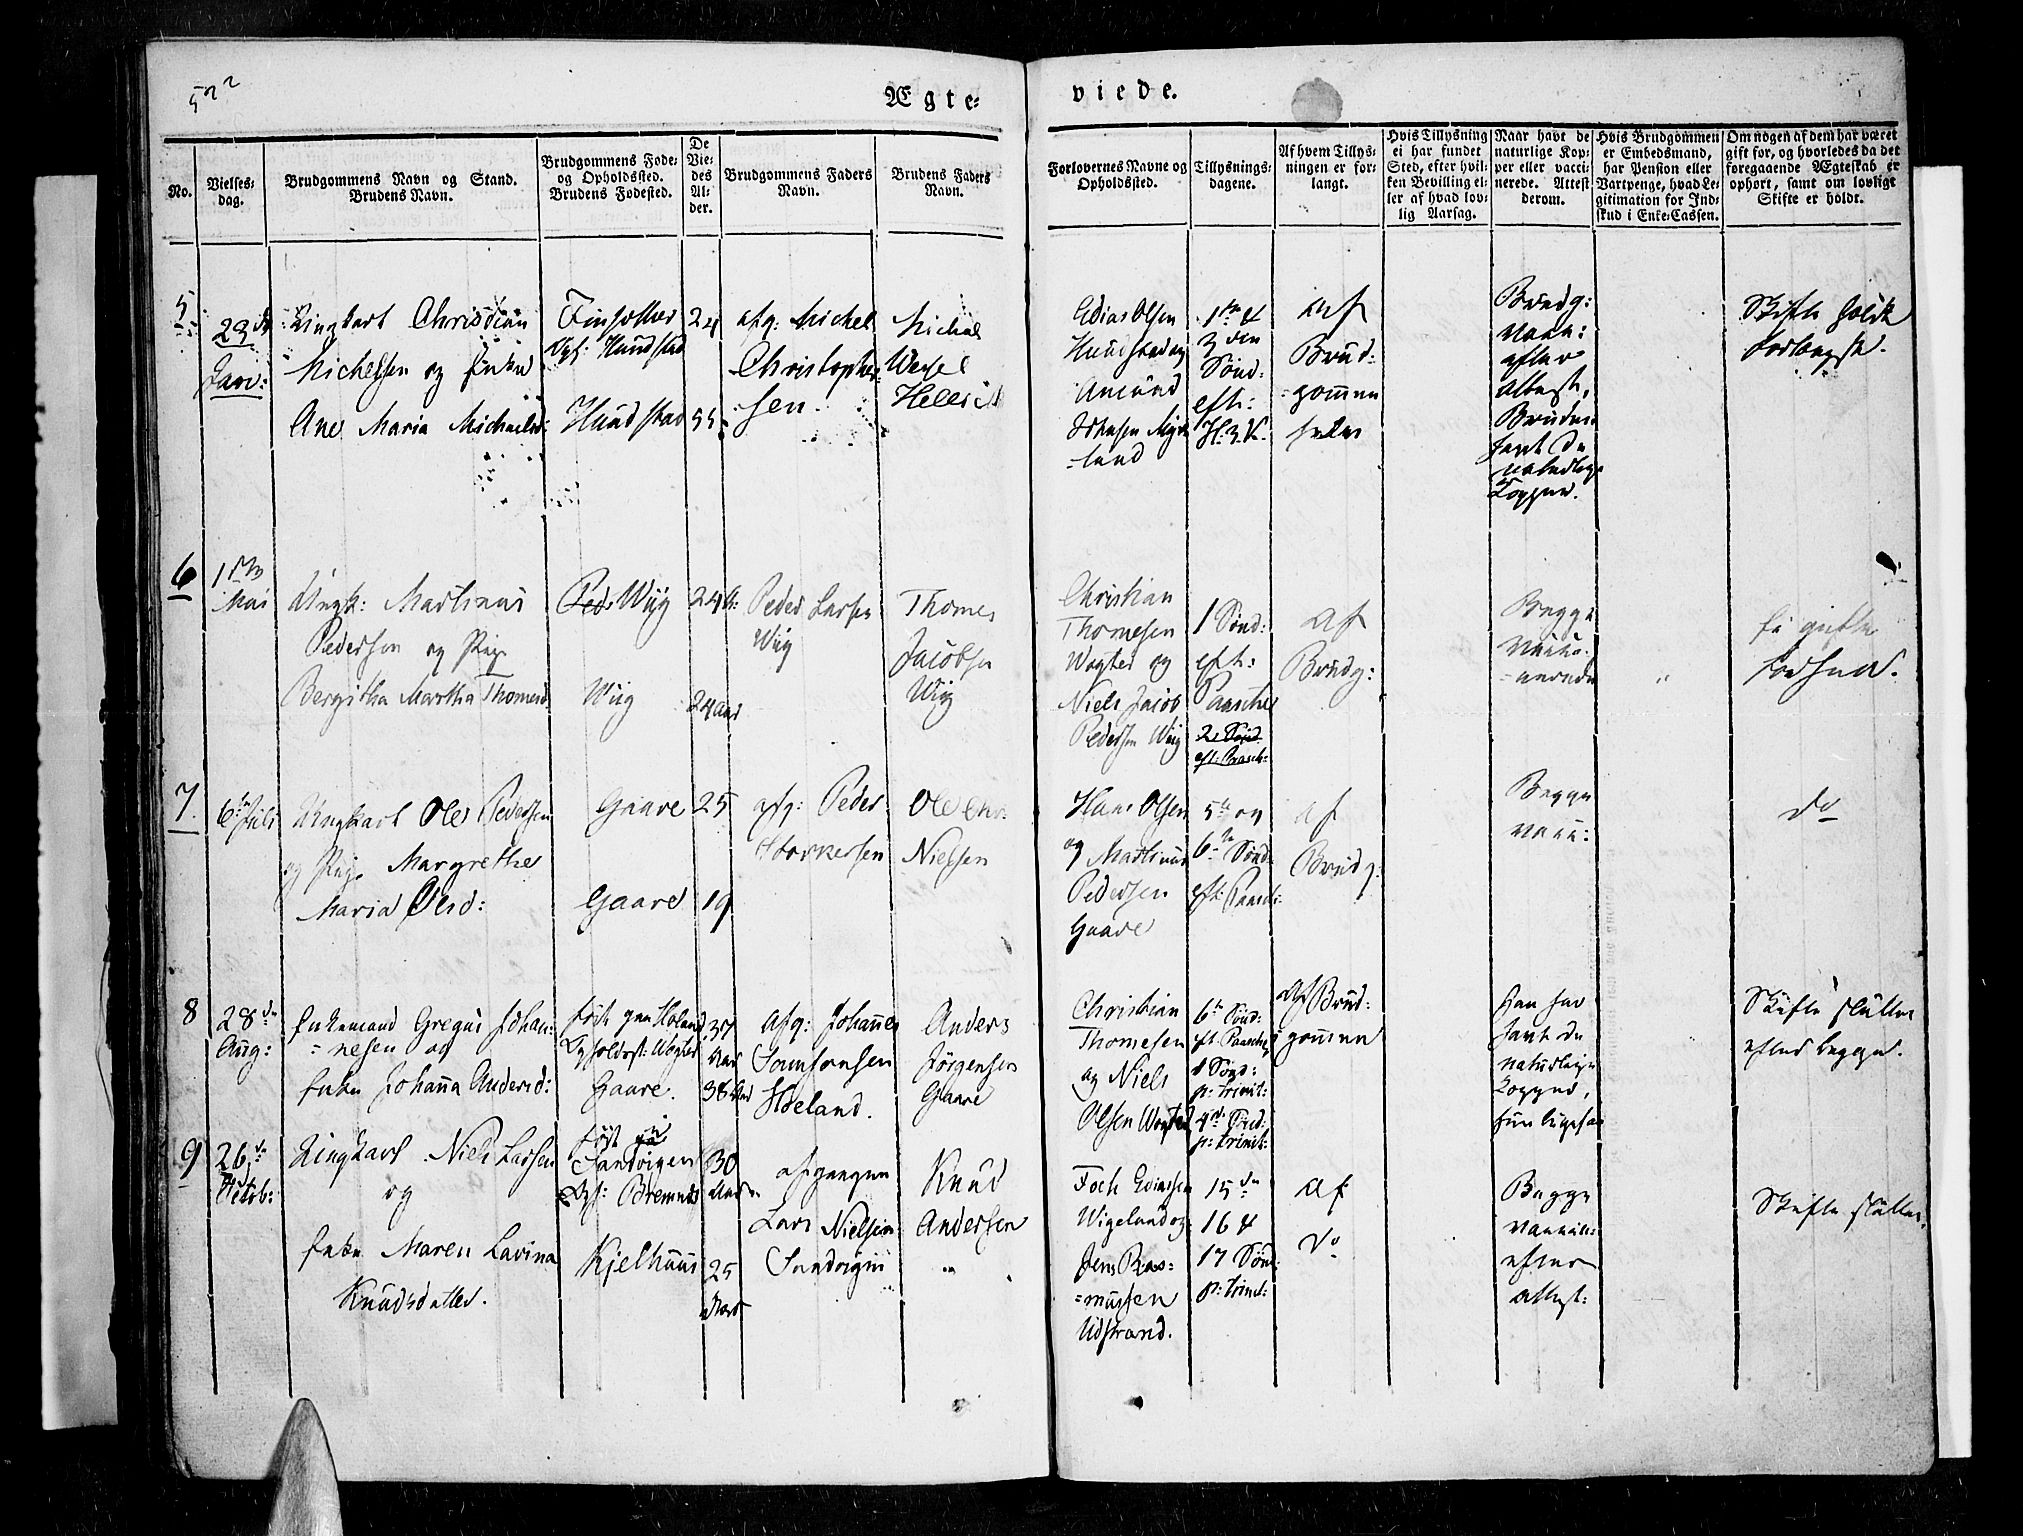 522
Ægte=
viede.
No.
Vielses=
dag.
Brudgommens Navn og Stand.
Brudens Navn.
Brudgommens Føde=
og Opholdssted.
Brudens Fødested.
De
Vie=
des
Al=
der.
Brudgommens Faders
Navn.
Brudens Faders
Navn.
Forlovernes Navne og
Opholdssted.
Tillysnings=
dagene.
Af hvem Tillys=
ningen er for=
langt.
Hvis Tillysning
ei har fundet
Sted, efter hvil=
ken Bevilling el=
ler af hvad lov=
lig Aarsag.
Naar havt de
naturlige Kop=
per eller vacci=
nerede. Attest
derom.
Hvis Brudgommen
er Embedsmand,
har Pension eller
Vartpenge, hvad Le=
gitimation for Ind=
skud i Enke=Cassen.
Om nogen af dem har været
gift før, og hvorledes da det
foregaaende Ægteskab er
ophørt, samt om lovligt
Skifte er holdt.
5
23de
Jan:
Ungkarl Christian
Michelsen og Enke
Ane Maria Michaelsd:
Opf: Hundstad
Hundstad
24
55
afg: Michel
Christopher=
sen
Michael
Wessel
Edias Olsen
Hundstad og
Amund
Johnsen Myr=
=land
1ste &
3den
Sønd:
eft:
H: 3 K.
af
Brud=
=gommen
selv
Brudg:
vacc:
efter
attest,
Bruden
havt de
naturlige
Kopper.
Skifte holdt
6
1ste
Mai
Ungk: Martinus
Pedersen og Pige
Bergitha Martha Thomesd.
Wiig
Wiig
24 A:
24 Aar
Peder Larsen
Wiig
Thomes
Jacobsen
Wiig
Christian
Thomesen
Wogter og
Niels Jacob
Pedersen Wiig
1 Sønd:
eft:
Paasche
2de Sønd.
eft: Paasch:
af
Brudg:
Begge
vacci=
=nerede
"
Ei gifte
forhen.
7
6te Juli
Ungkarl Ole Pedersen
og Pige Margrethe
Maria Olsd:
Gaare
Gaare
25
19
afg: Peder
Storkersen
Ole Chr:
Nielsen
Hans Olsen
og Martinus
Pedersen
Gaare
5te og
6te Sønd:
eft: Paasch:
af
Brudg:
Begge
vacc:
do
8
28de
Aug:
Enkemand Gregus Johan=
=nesen og
Enke Johanna Andersd:
Opholdsst: Wogter
Gaare.
37
Aar
38 Aar
afg: Johannes
Samsonsen
Høeland.
Anders
Jørgensen
Gaare
Christian
Thomesen
og Niels
Olsen Wogter
6te Sønd:
eft: Paasche,
1 Sønd:
p: trinit:
4de Sønd:
p: trinit:
Af Brud=
gommen
Han har
havt de
naturlige
Kopper,
hun ligesaa
Skifte sluttet
efter begge.
9
26de
Octob:
Ungkarl Niels Larsen
og
Enke Maren Lavina
Knudsdatter.
født paa
Sandvigen
Opf: Bremnes
Kjelhuus
30
Aar
25
Aar
afgangen
Lars Nielsen
Sandvigen
Knud
Andersen
"
Foch Ediassen
Wigeland og
Jens Ras=
=mussen
Udstrand.
15de
16 &
17 Sønd:
p: trinit:
af
do
Begge
vaccin:
efter
attest:
Skifte sluttet.